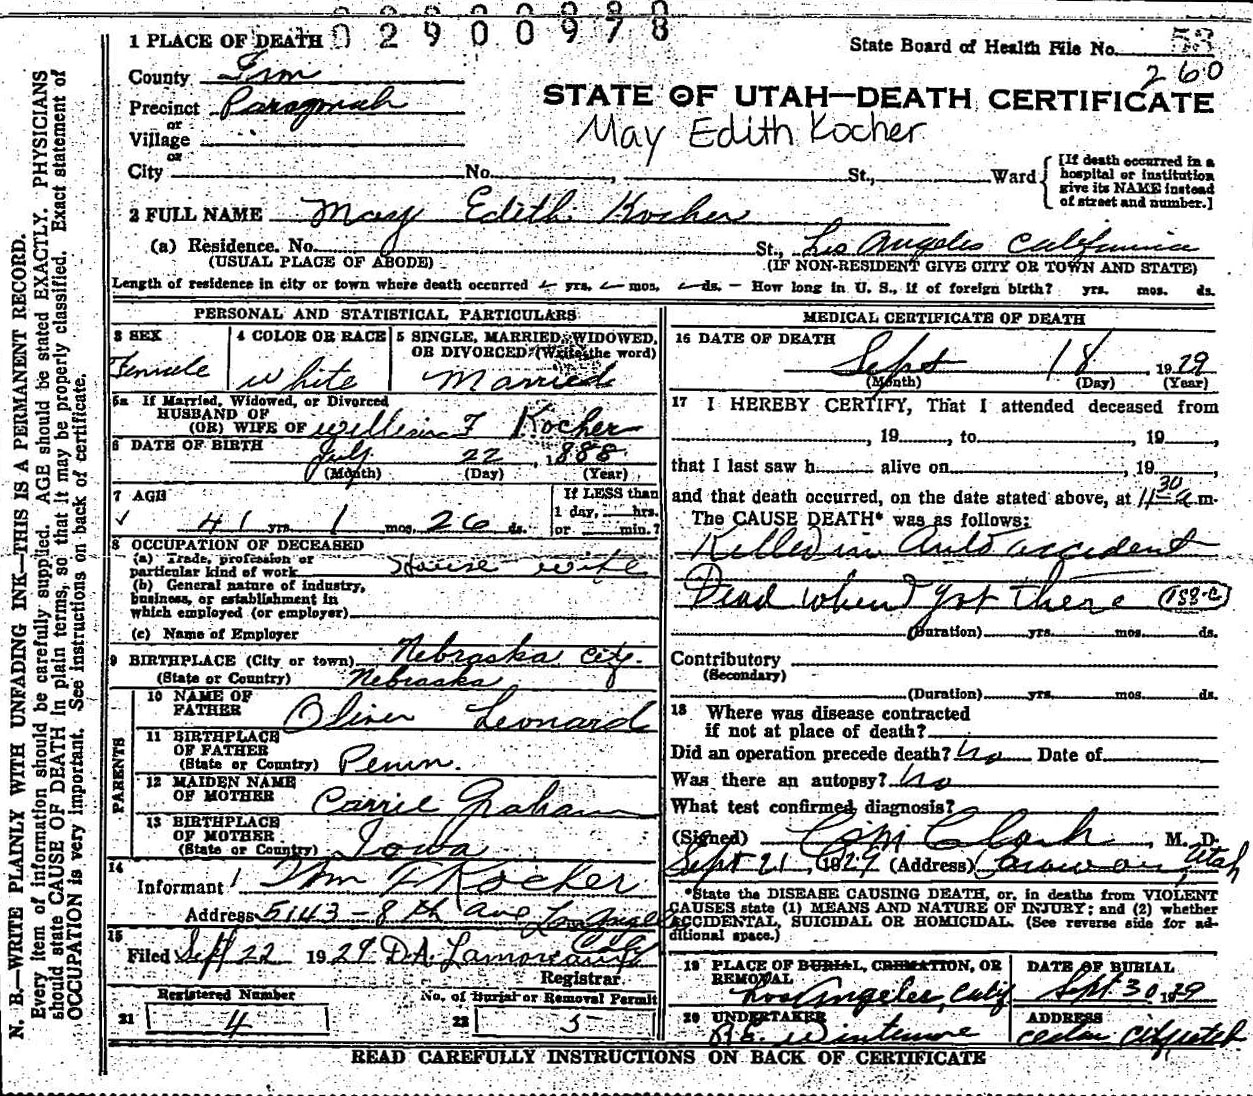 0 2 9 0 0 9 7 8
1 PLACE OF DEATH
State Board of Health File No. 53
260
County Irn
Precinct Paragonah
or
Village
or
STATE OF UTAH—DEATH CERTIFICATE
May Edith Kocher
City No. , St., Ward
[If death occurred in a
hospital or institution
give its NAME instead
of street and number.]
2 FULL NAME May Edith Kocher
(a) Residence. No. St., Los Angeles California
(USUAL PLACE OF ABODE) (IF NON-RESIDENT GIVE CITY OR TOWN AND STATE)
Length of residence in city or town where death occurred yrs. mos. ds. How long in U. S., if of foreign birth? yrs. mos. ds.
PERSONAL AND STATISTICAL PARTICULARS
3 SEX
Female
4 COLOR OR RACE
White
5 SINGLE, MARRIED, WIDOWED,
OR DIVORCED (Write the word)
Married
5a If Married, Widowed, or Divorced
HUSBAND OF
(OR) WIFE OF William F Kocher
6 DATE OF BIRTH
July 22, 1888
(Month) (Day) (Year)
7 AGE
41 yrs. 1 mos. 26 ds.
If LESS than
1 day, hrs.
or min.?
8 OCCUPATION OF DECEASED
(a) Trade, profession or
particular kind of work House wife
(b) General nature of industry,
business, or establishment in
which employed (or employer)
(c) Name of Employer
9 BIRTHPLACE (City or town) Nebraska City.
(State or Country) Nebraska
PARENTS
10 NAME OF
FATHER Oliver Leonard
11 BIRTHPLACE
OF FATHER
(State or Country) Penn.
12 MAIDEN NAME
OF MOTHER Carrie Graham
13 BIRTHPLACE
OF MOTHER
(State or Country) Iowa
14
Informant Wm F Kocher
Address 5143 - 8th Ave Los Angeles
Calif
15
Filed Sept 22 1929 D.A. Lamoreaux
Registrar
Registered Number
21 4
No. of Burial or Removal Permit
22 5
MEDICAL CERTIFICATE OF DEATH
16 DATE OF DEATH
Sept 18, 1929
(Month) (Day) (Year)
17 I HEREBY CERTIFY, That I attended deceased from
, 19 , to , 19 ,
that I last saw h alive on , 19 ,
and that death occurred, on the date stated above, at 11 30 a m.
The CAUSE DEATH* was as follows:
Killed in Auto accident
Dead when I got there 188-c
(Duration) yrs. mos. ds.
Contributory
(Secondary)
(Duration) yrs. mos. ds.
18 Where was disease contracted
if not at place of death?
Did an operation precede death? No Date of
Was there an autopsy? No
What test confirmed diagnosis?
(Signed) Clark, M. D.
Sept 21, 1929 (Address) Parowan, Utah
*State the DISEASE CAUSING DEATH, or, in deaths from VIOLENT
CAUSES state (1) MEANS AND NATURE OF INJURY; and (2) whether
ACCIDENTAL, SUICIDAL OR HOMICIDAL. (See reverse side for ad-
ditional space.)
19 PLACE OF BURIAL, CREMATION, OR
REMOVAL
Los Angeles, Calif
DATE OF BURIAL
Sept. 30, 1929
20 UNDERTAKER
ADDRESS
Cedar City Utah
READ CAREFULLY INSTRUCTIONS ON BACK OF CERTIFICATE
N. B.—WRITE PLAINLY WITH UNFADING INK—THIS IS A PERMANENT RECORD.
Every item of information should be carefully supplied. AGE should be stated EXACTLY. PHYSICIANS
should state CAUSE OF DEATH in plain terms, so that it may be properly classified. Exact statement of
OCCUPATION is very important. See instructions on back of certificate.